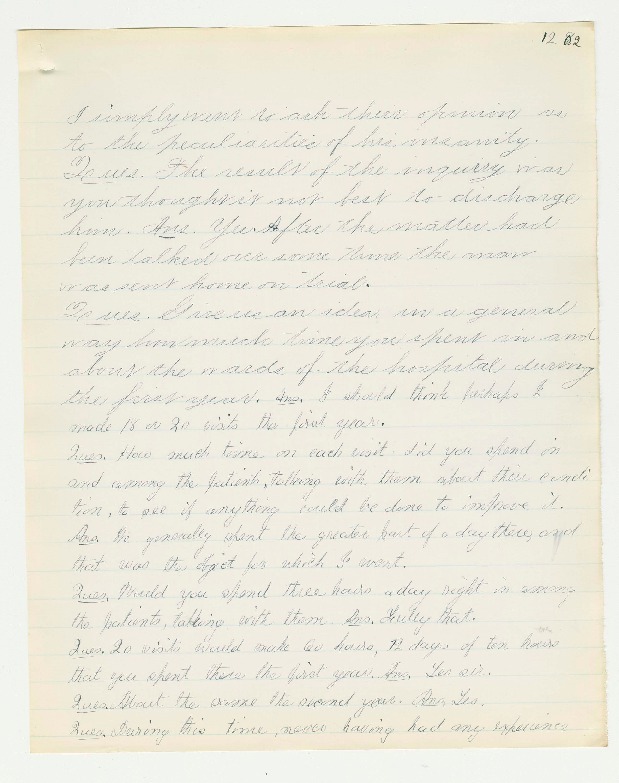 12 82
I simply went to ask their opinion as
to the peculiarities of his insanity.
Ques. The result of the inquiry was
you thought it not best to discharge
him. Ans. Yes. After the matter had
been talked over some time the man
was sent home on trial.
Ques. Give us an idea, in a general
way how much time you spent in and
about the wards of the hospital during
the first year. Ans. I should think perhaps I
made 18 or 20 visits the first year.
Ques. How much time on each visit did you spend in
and among the patients, talking with them about their condi
tion, to see if anything could be done to improve it.
Ans. We generally spent the greater part of a day there, and
that was the object for which I went.
Ques. Would you spend three hours a day right in among
the patients, talking with them. Ans. Fully that.
Ques. 20 visits would make 60 hours, days of ten hours
that you spent there the first year. Ans. Yes sir.
Ques. About the same the second year. Ans. Yes.
Ques. During this time, never having had any experience